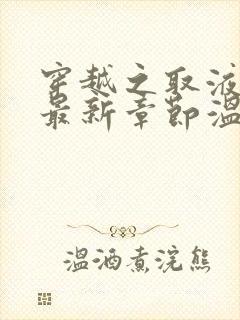 穿越之取液
最新章节温
温酒煮浣熊